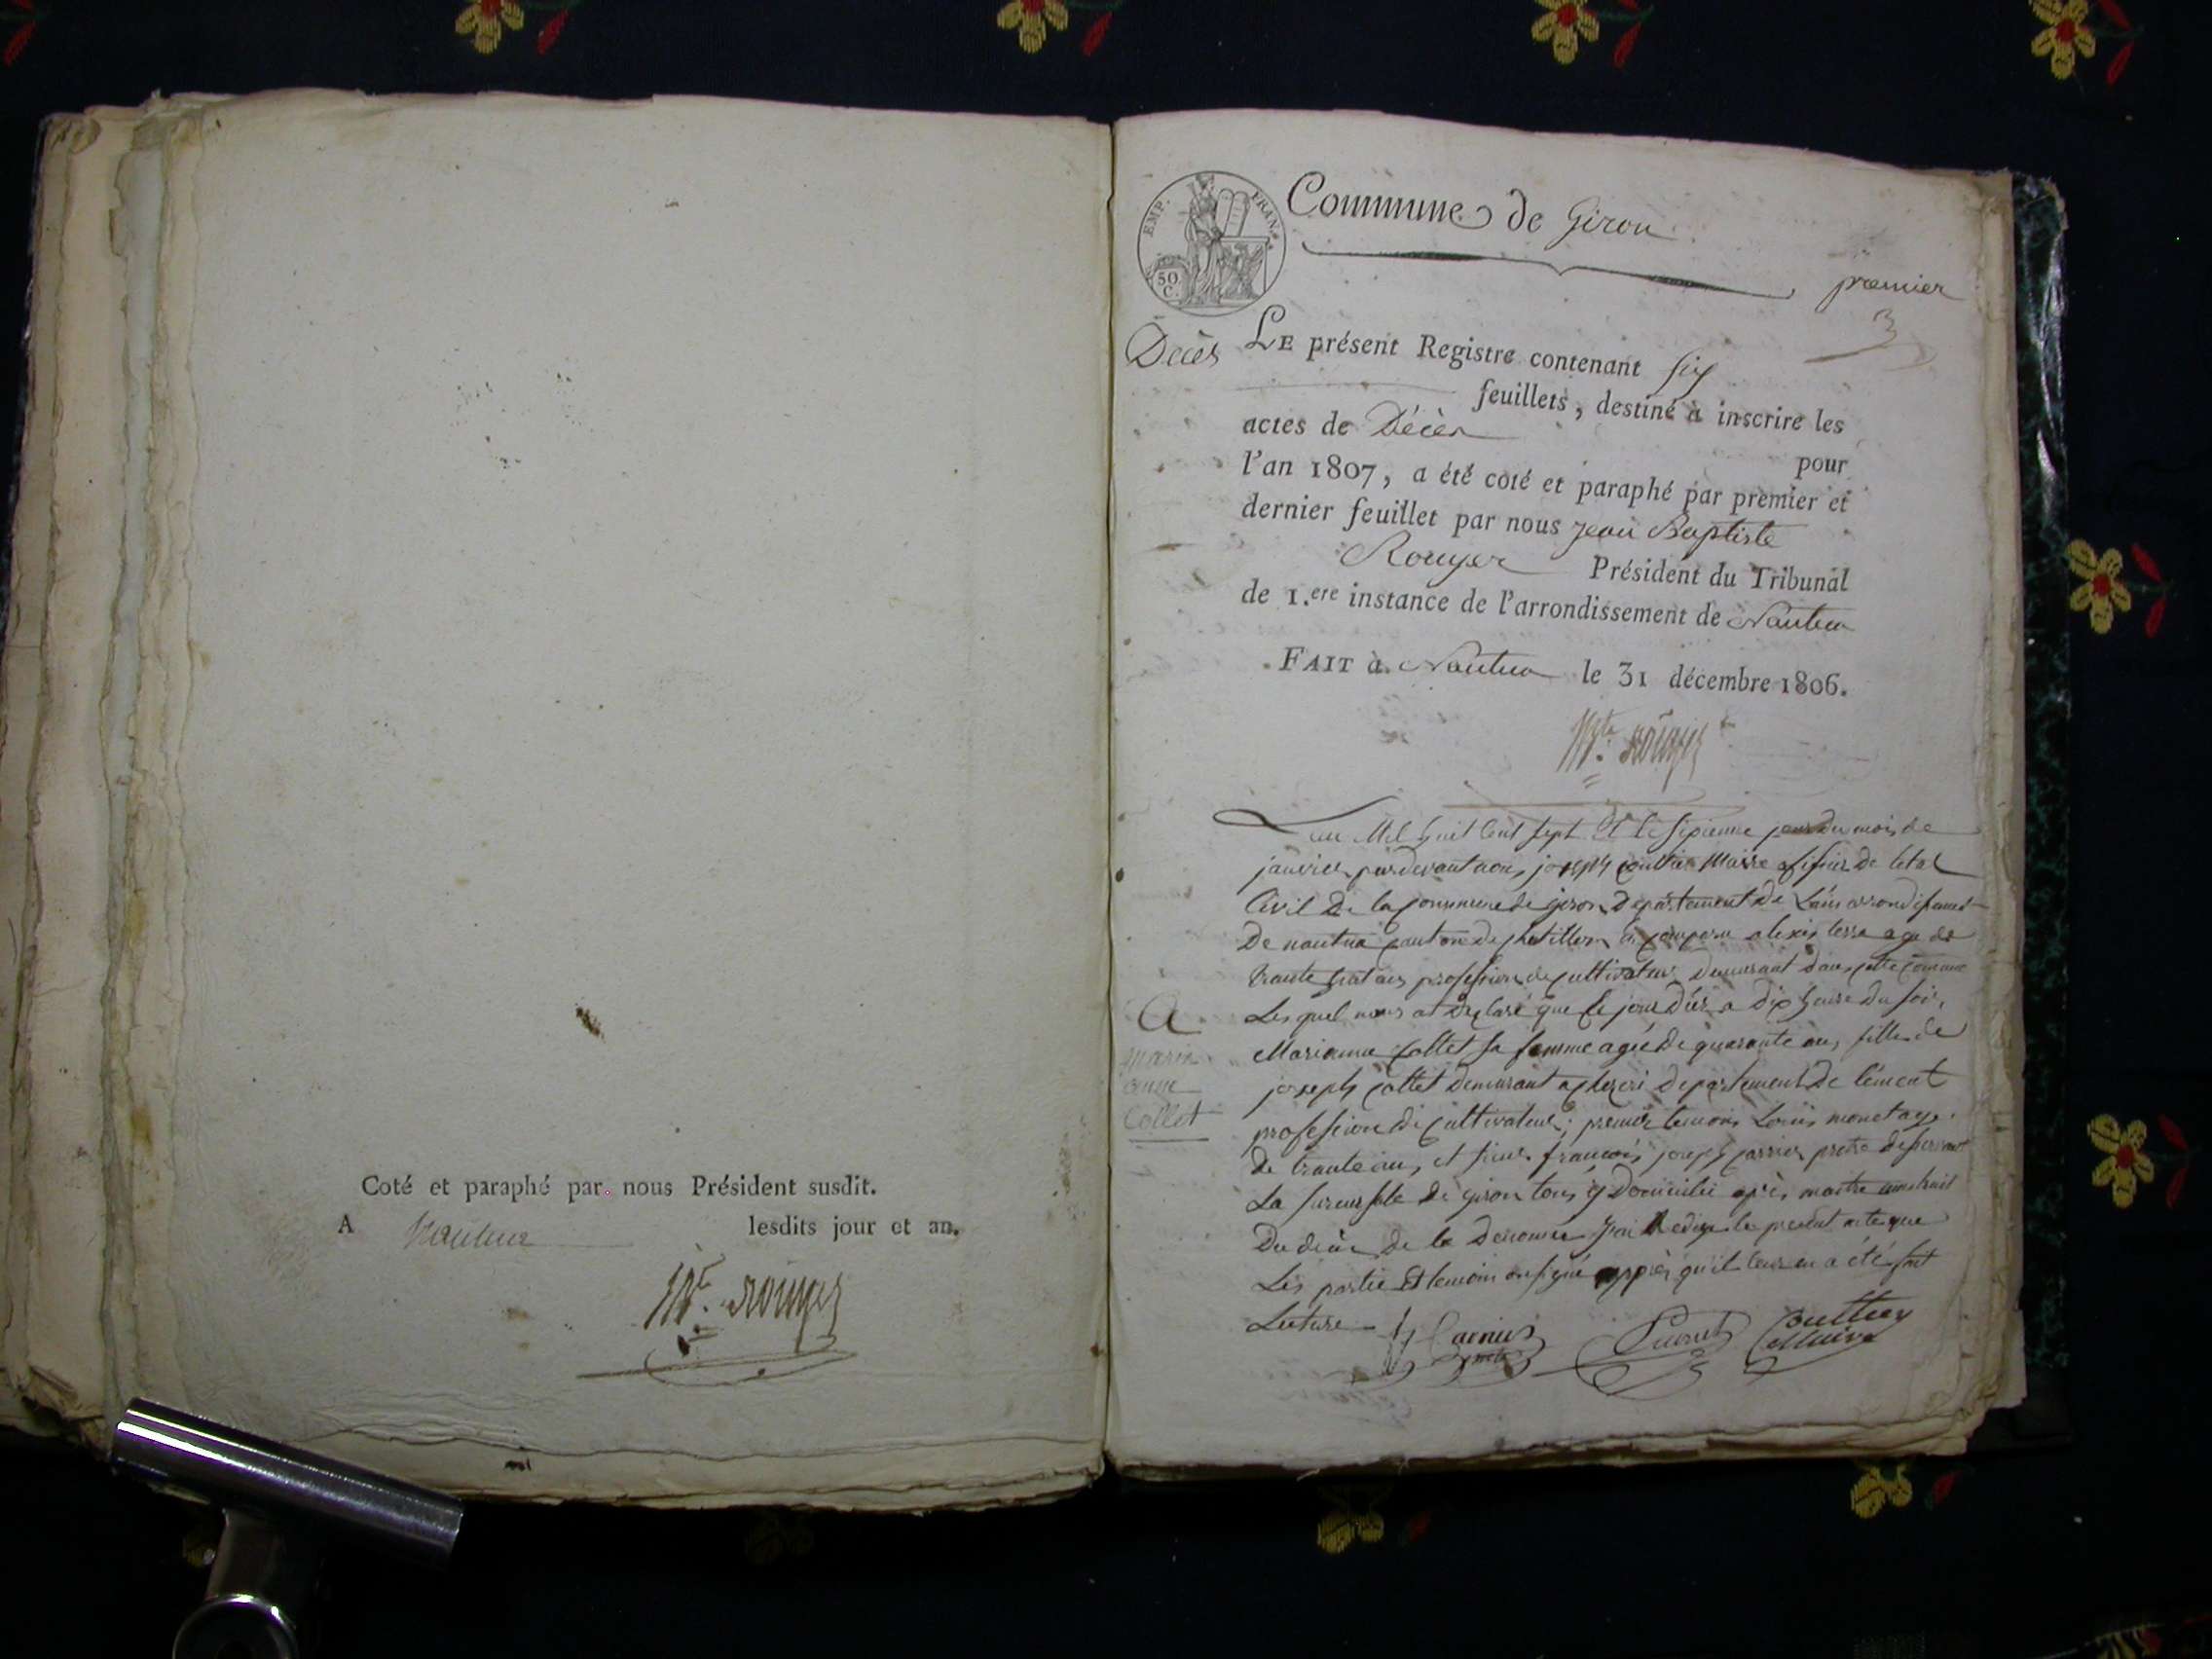 Coté et paraphé par nous Président susdit.
A Nantua lesdits jour et an.
Bte. Rouyer
EMP. FRAN.
50 C.
Commune de Giron
premier
Décès
LE présent Registre contenant six
feuillets, destiné à inscrire les
actes de Décès
pour
l'an 1807, a été coté et paraphé par premier et
dernier feuillet par nous Jean Baptiste
Rouyer Président du Tribunal
de 1.ere instance de l'arrondissement de Nantua
FAIT à Nantua le 31 décembre 1806.
Bte. Rouyer
Lan Mil huit Cent sept et le sixieme jour du mois de
janvier pardevant nous joseph Maire officier de letat
Civil De la Commune de giron Departement de Lain arrondissement
De nantua canton de chatillon a comparu alexis age de
trante ans profession de cultivateur Demeurant dans cette commune
Les quel nous at declaré que le jour d'ier a dix heure du soir,
Marianne Collet sa femme agée de quarante ans, fille de
joseph Collet demeurant a departement de lément
profession de cultivateur; premier temoin Louis monet age
De trante ans, et sieur francois joseph pretre
La de giron tous y Domicilié après
Du de la j'ai Redigé le present acte que
Les partie Et temoin on signé appres qu'il leur en a été fait
Lecture
A
Marie
anne
Collet
Maire